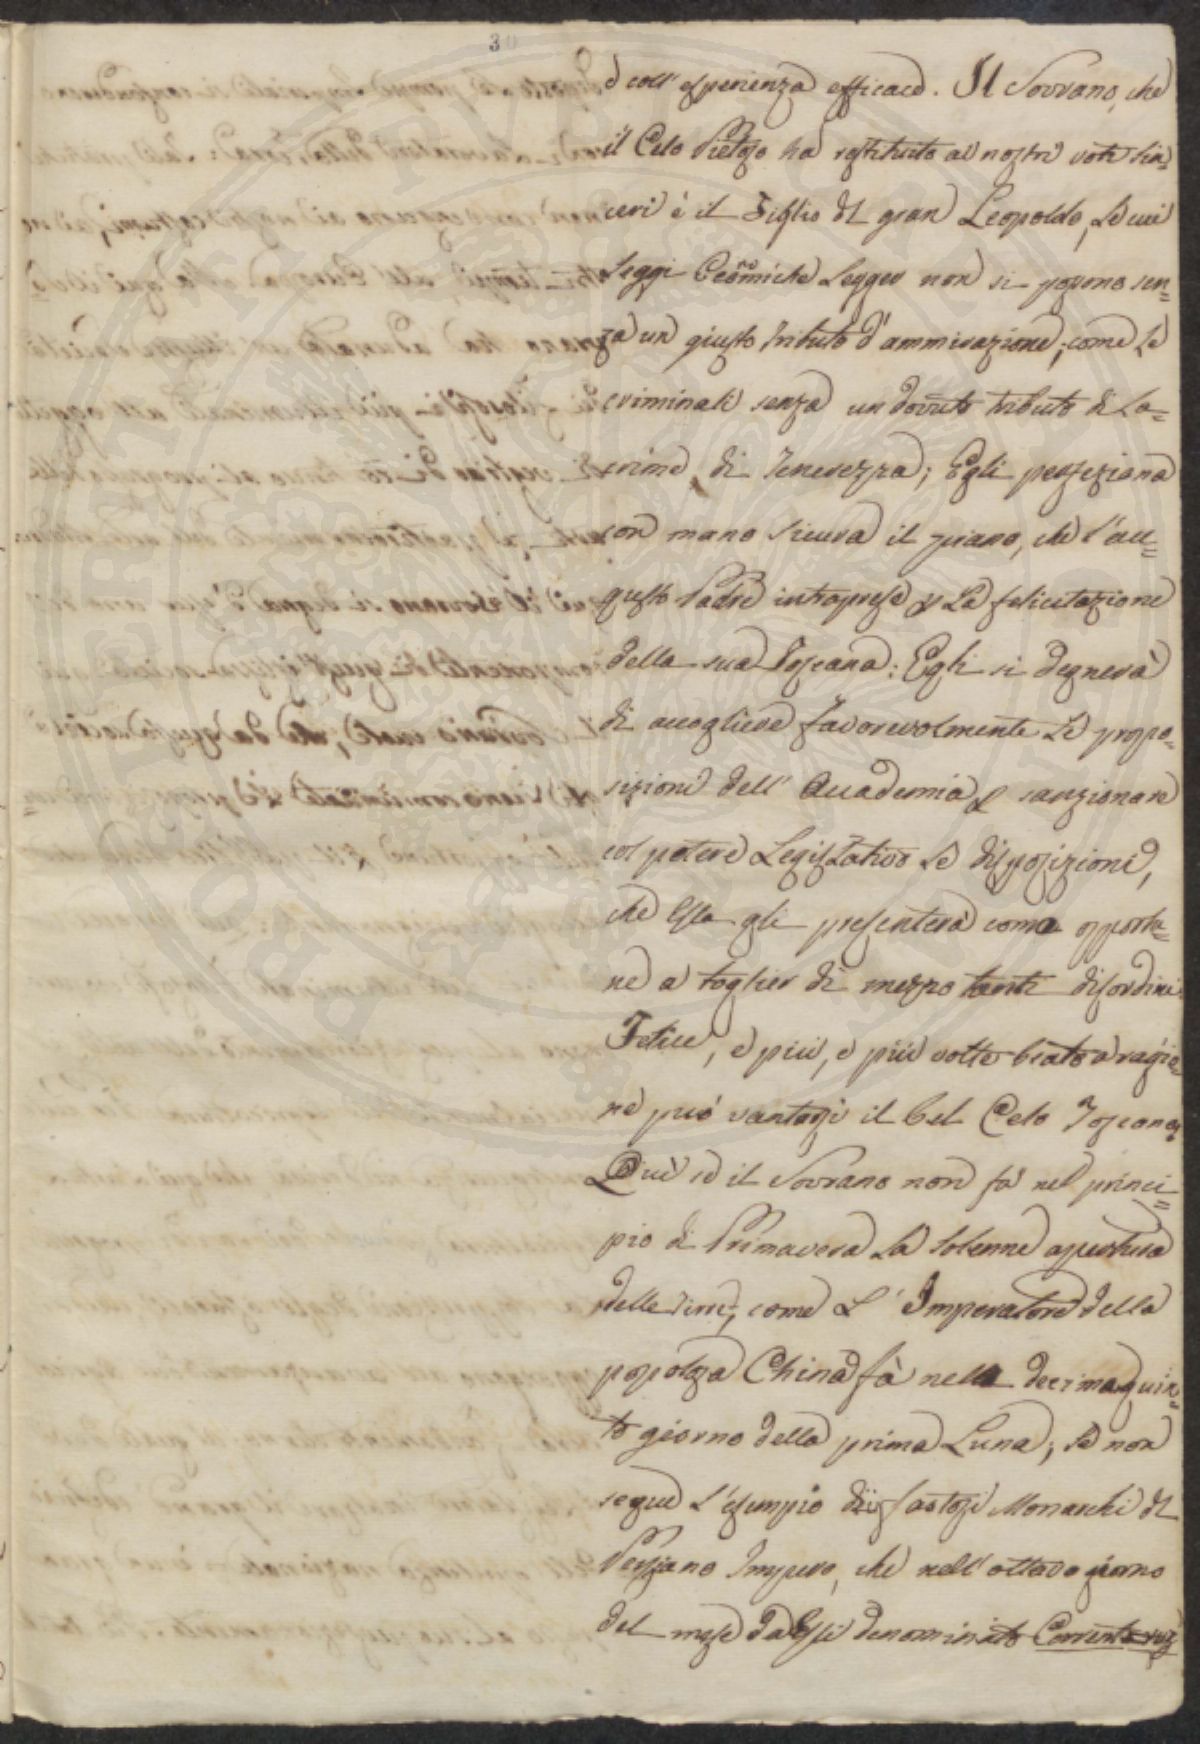 30
e coll' esperienza efficace. Il Sovrano, che
il Celo Pietoso ha restituito ai nostri voti sin=
ceri è il Figlio del gran Leopoldo, Le cui
Leggi Economiche Legger non si possono sen=
za un giusto tributo d'ammirazione, come Le
criminali senza un dovuto tributo di La=
crime di Tenerezza; Egli perfeziona
con mano sicura il piano, che l'au=
gusto Padre intraprese p La felicitazione
della sua Toscana: Egli si degnerà
di accogliere favorevolmente Le propo=
sizioni dell' Accademia, e sanzionare
col potere Legislativo Le disposizioni,
che Essa gli presenterà come opportu=
ne a toglier di mezzo tanti disordini
Felice, e più, e più volte beato a ragio=
ne può vantarsi il bel Celo Toscano
Quì se il Sovrano non fà nel princi=
pio di Primavera La solenne apertura
delle come L' Imperatore della
popolosa China fà nella decimaquin=
to giorno della prima Luna; se non
segue L'esempio dei fastosi Monarchi del
Persiano Impero, che nell' ottavo giorno
del mese da Essi denominato